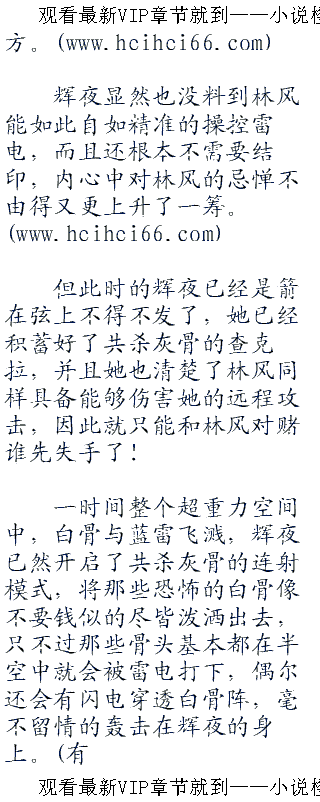 观看最新VIP章节就到——小说检
方。(www.hcihci66.com)
辉夜显然也没料到林风
能如此自如精准的操控雷
电，而且还根本不需要结
印，内心中对林风的忌惮不
由得又更上升了一筹。
(www.hcihci66.com)
但此时的辉夜已经是箭
在弦上不得不发了，她已经
积蓄好了共杀灰骨的查克
拉，并且她也清楚了林风同
样具备能够伤害她的远程攻
击，因此就只能和林风对赌
谁先失手了！
一时间整个超重力空间
中，白骨与蓝雷飞溅，辉夜
已然开启了共杀灰骨的连射
模式，将那些恐怖的白骨像
不要钱似的尽皆泼洒出去，
只不过那些骨头基本都在半
空中就会被雷电打下，偶尔
还会有闪电穿透白骨阵，毫
不留情的轰击在辉夜的身
上。(有
观看最新VIP章节就到——小说检